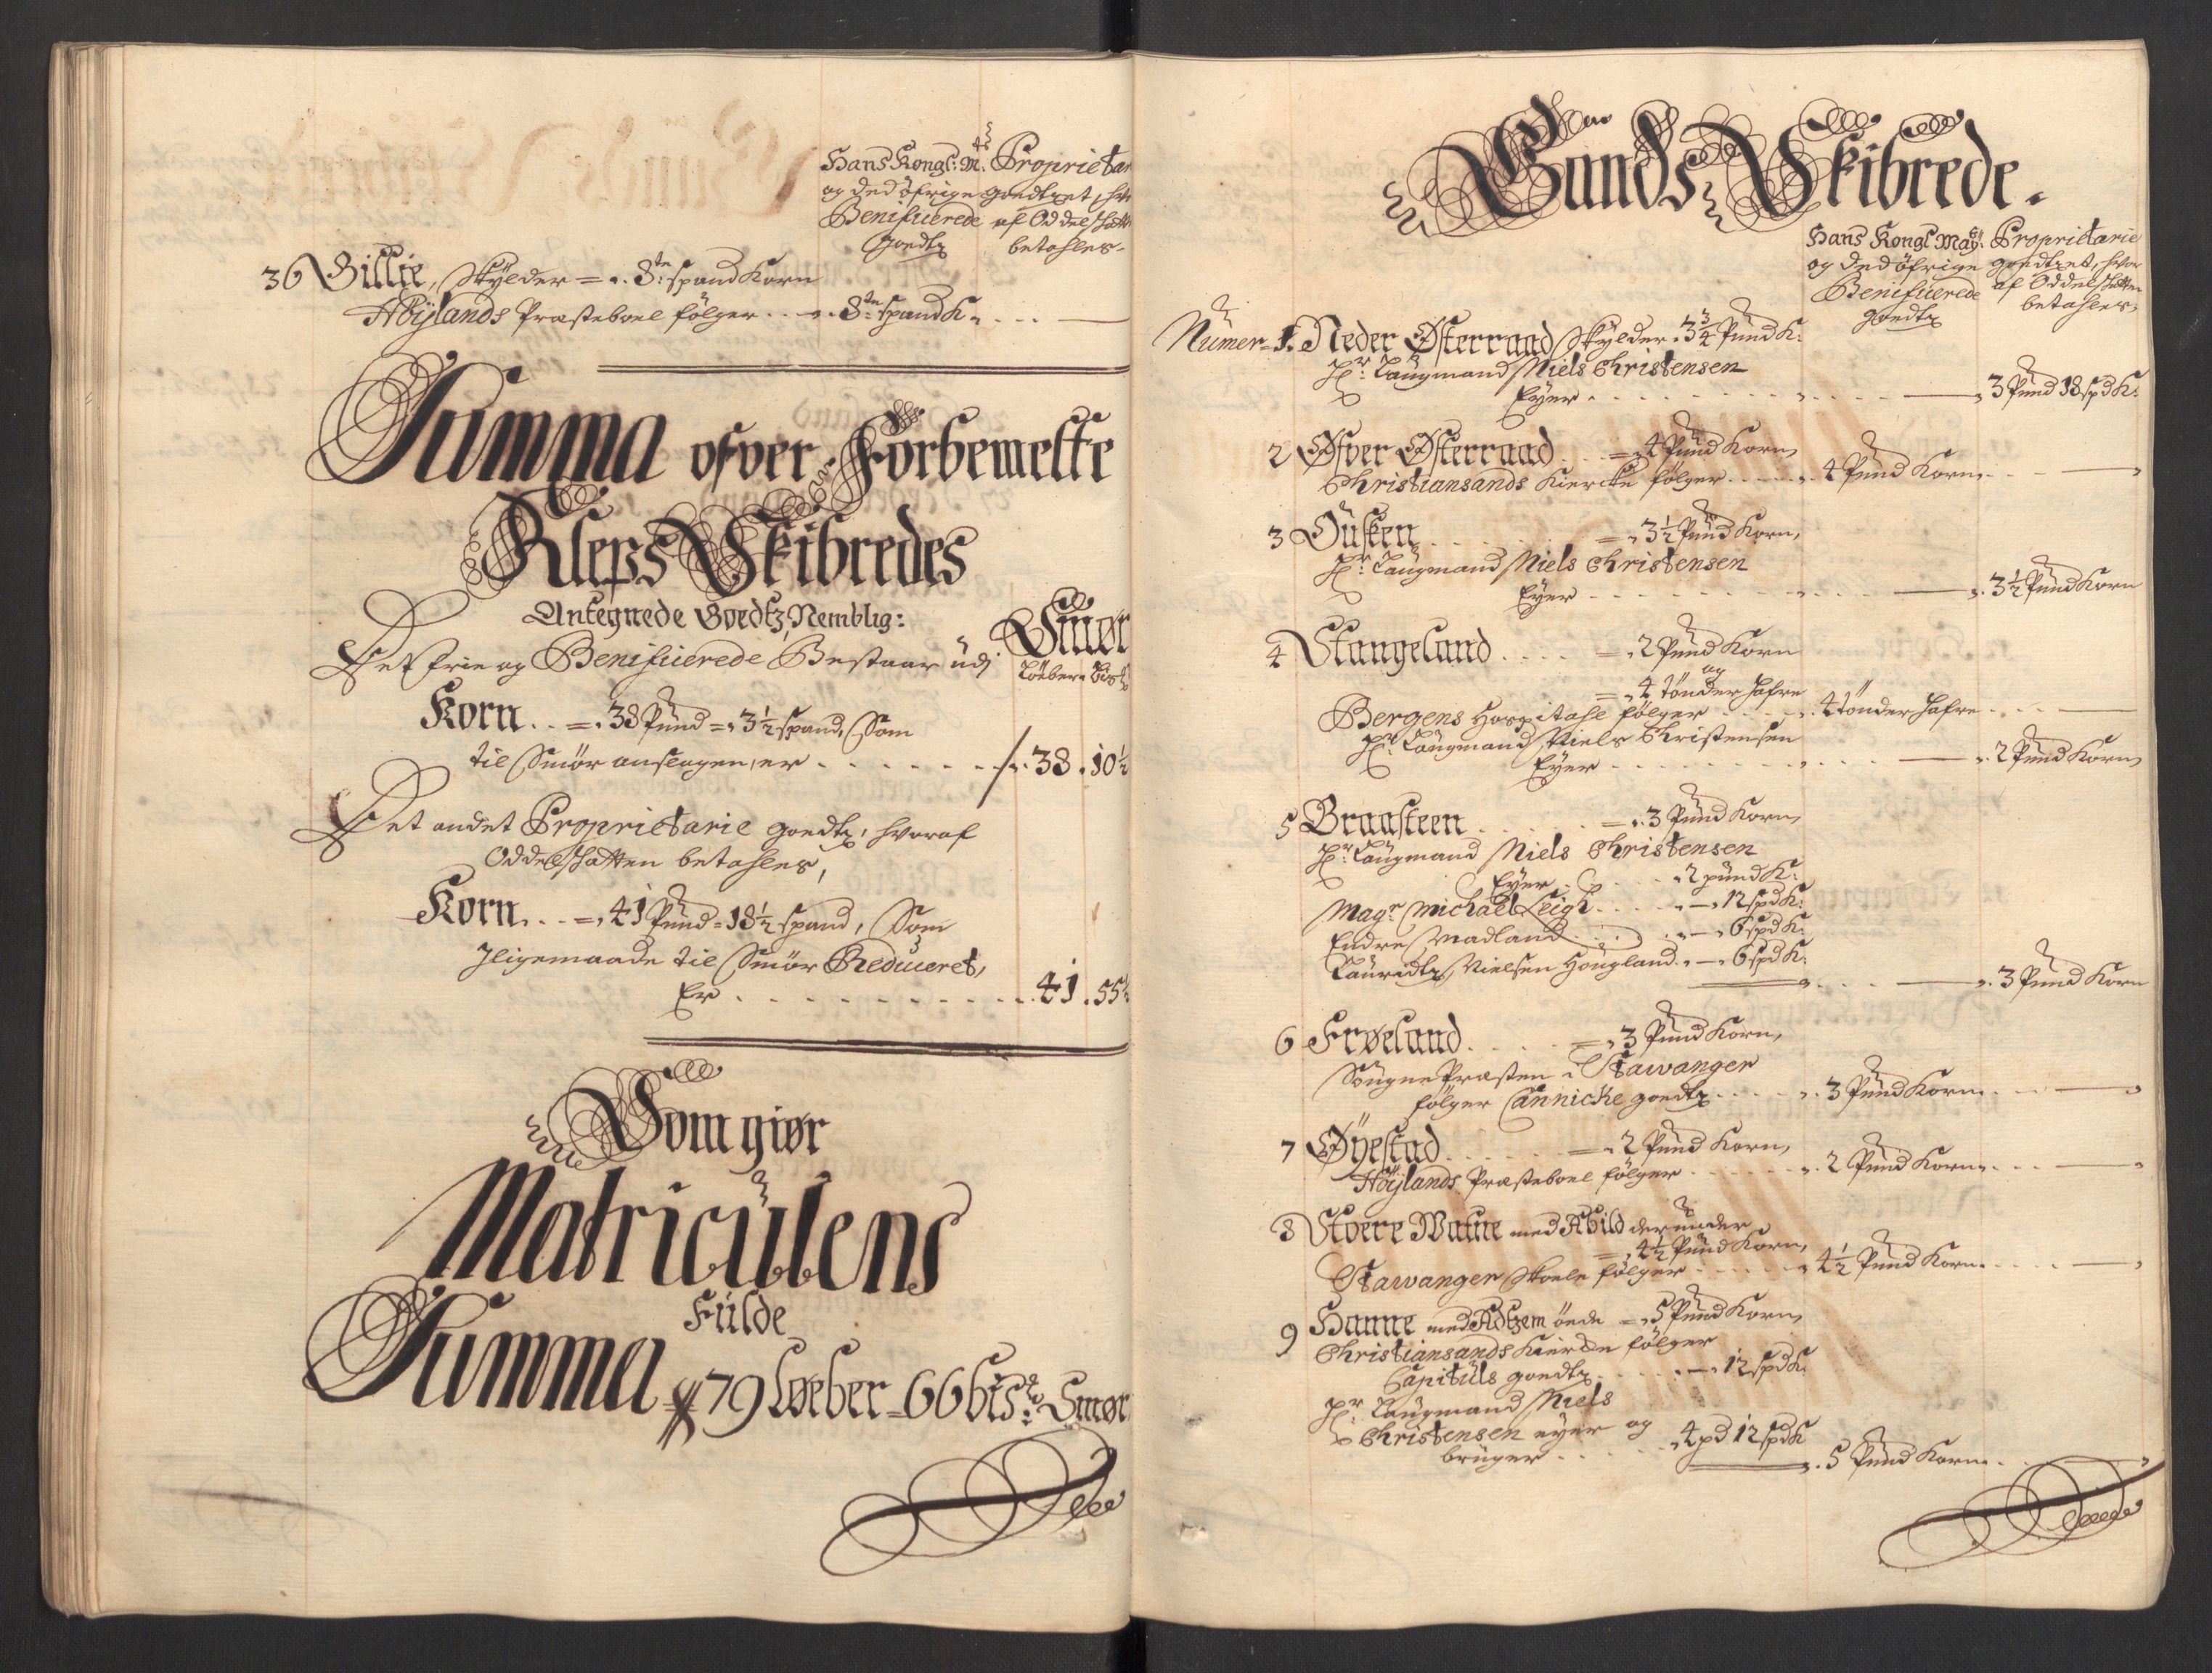 Hans Kongl: M. Proprietar
og ded öfrige goedtzet, hvo
Benificerede af Oddelskatt
goedtz betahles.
36 Gillie, Skylder = 8te spand Korn
Höÿlands Præsteboel fölger . . 8te spand K. . . .
Summa ofver Forbemelte
Kleps Skibredes
Antegnede Goedtz, Nemblig:
Smør
Det frie og Benificerede Bestaar udj Löeber
Korn. . = 38 Pund = 3½ spand, Som
til Smör anslagen, er . . . . . . 38. 10½
Det andet Proprietarie goedtz, hvoraf
Oddelskatten betahles,
Korn. . . = 41 Pund = 18½ spand, Som
Jligemaade til Smör Reduceret,
Er . . . . . . . . . . . 41. 55½
Som giør
Matriculens
Fulde
Summa 79 Løeber = 66 bis: Smør
Gands Skibrede.
Hans Kongl May: Proprietarie
og ded öfrige goedtzet, hvor
Benificerede af Oddelskatten
goedtz betahles,
Numer = 1. Neder Østerraad Skylder. 3¾ Pund K:
Hr: Laugmand Niels Christensen
Eÿer . . . . . . . 3 Pund 18 spd K:
2 Øfver Østerraad . . = 4 Pund Korn,
Christiansands Kiercke fölger . . . . 4 Pund Korn. . .
3 Ousken . . . . . = 3½ Pund Korn,
Hr: Laugmand Niels Christensen
Eÿer . . . . . . . 3½ Pund Korn
4 Stangeland . . . . = 2 Pund Korn
og
= 4 tönder Hafre
Bergens Hospitahl fölger . . . . 4 tönder Hafre . . .
Hr: Laugmand Niels Christensen
Eÿer . . . . . . . 2 Pund Korn,
5 Braasteen . . . . . = 3 Pund Korn,
Hr: Laugmand Niels Christensen
Eÿer . . . . . 2 pund K:
Magr Michael Leigh . . . . 12 spd K:
Endre Madland . . . . 6 spd K:
Lauridtz Nielsen Hougland. 6 spd K:
3 Pund Korn
6 Frøeland . . . . = 3 Pund Korn,
SougnePræsten i Stawanger
fölger Cannicke goedtz . . . . 3 Pund Korn. . .
7 Øÿestad . . . . . = 2 Pund Korn,
Höÿlands Præsteboel fölger . . . . 2 Pund Korn. . .
8 Stoere Watne med Abild derunder
= 4½ Pund Korn,
Stawanger Skoele fölger . . . . 4½ Pund Korn. . .
9 Hanne med Adtzem öede = 5 Pund Korn,
Christiansands Kiercke fölger
Capituls goedtz . . . . 12 spd K
Hr: Laugmand Niels
Christensen eÿer og
bruger . . . . . 4 pd 12 spd K
5 Pund Korn. .